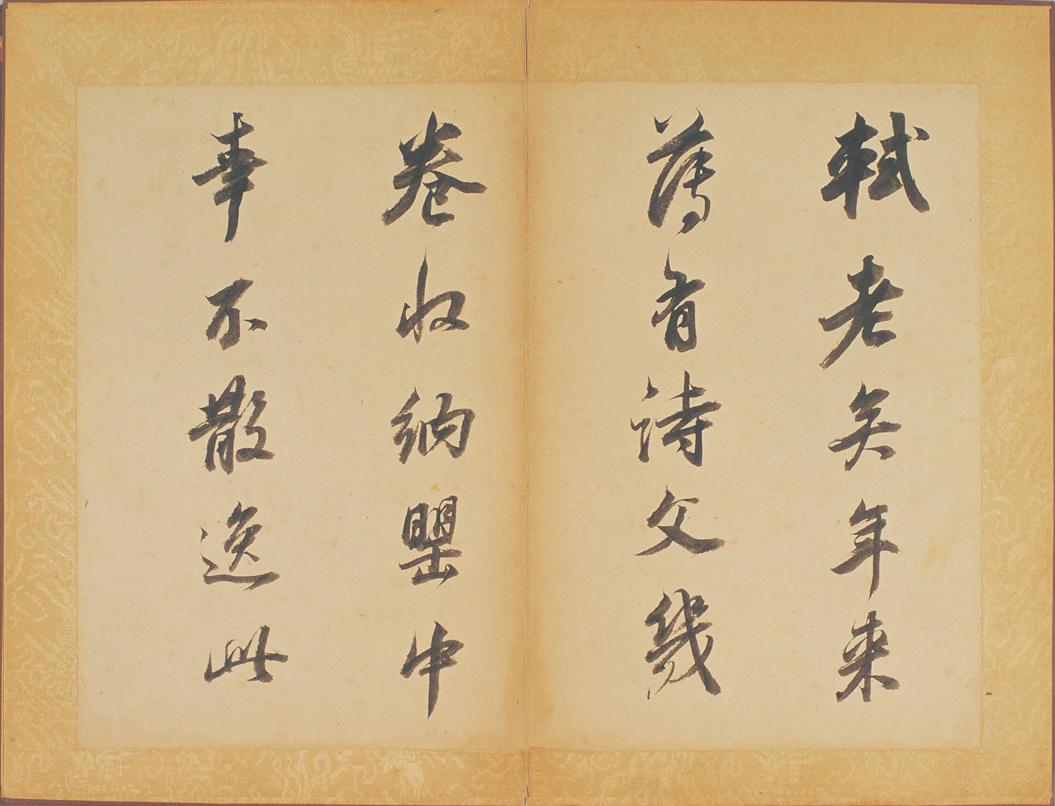 軾老矣年來
薄有詩文幾
卷收納罌中
幸不散逸此